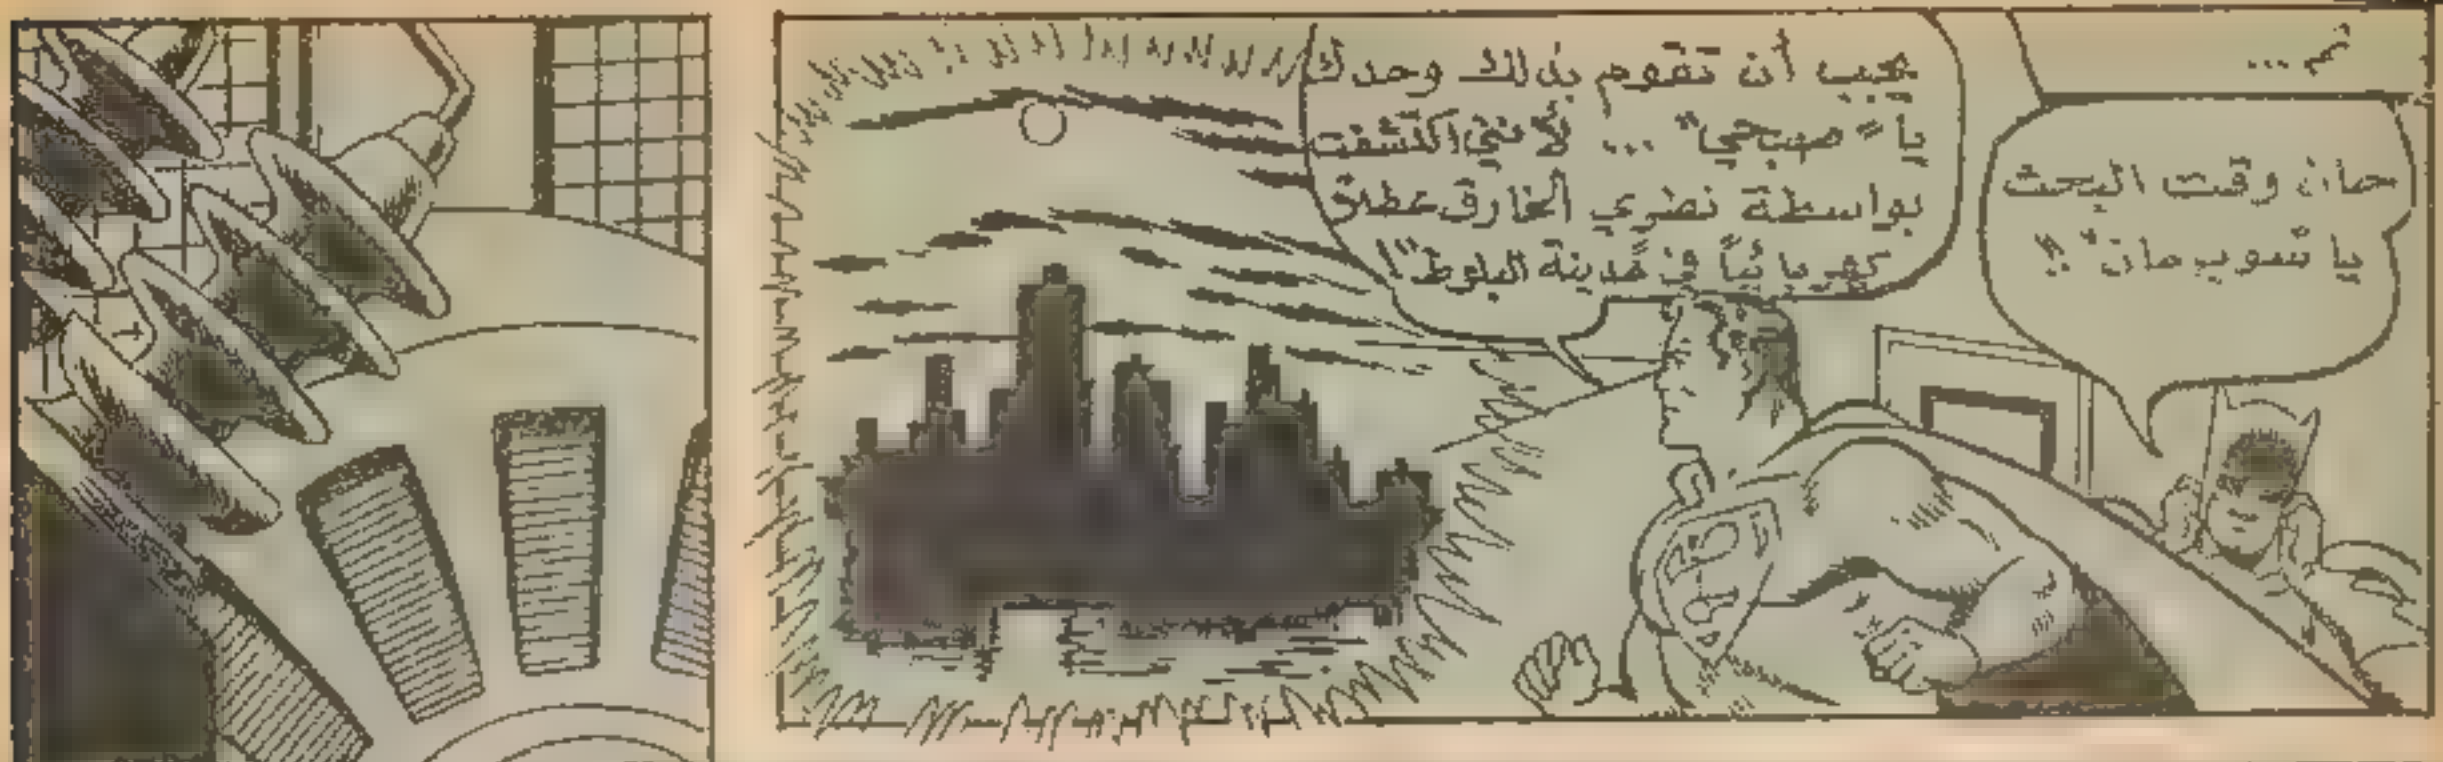 ثم ...
حان وقت البحث
يا "سوبرمان" !!
يجب أن تقوم بذلك وحدك
يا "صبحي" ... لأنني اكتشفت
بواسطة نظري الخارق عطلاً
كهربائياً في مدينة البلوط"!